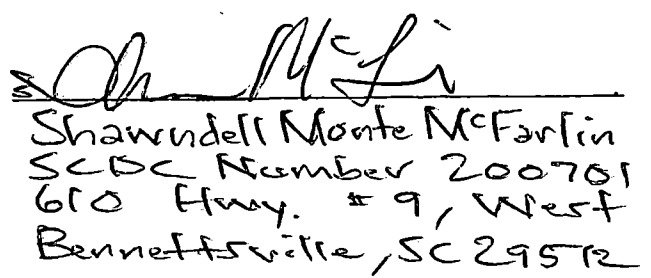 Shawndell Monte McFarlin
SCDC Number 200701
610 Hwy. #9, West
Bennettsville, SC 29512